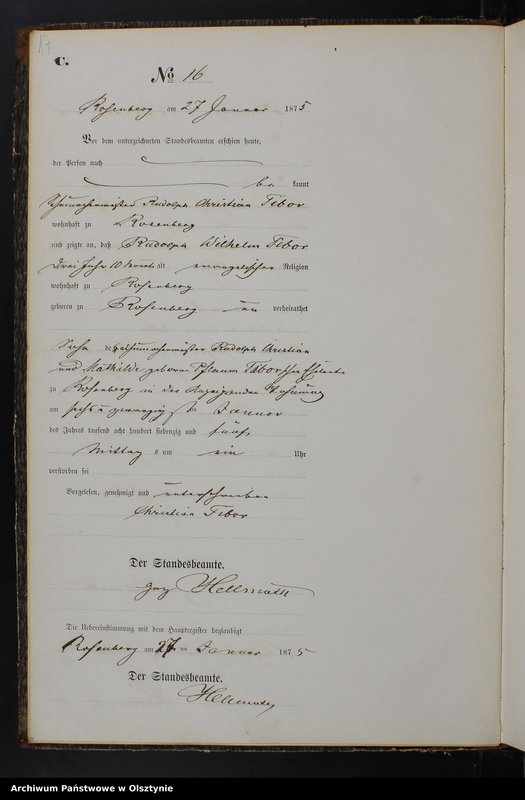 17
C.
No 16
Rosenberg am 27 Januar 1875
Vor dem unterzeichneten Standesbeamten erschien heute,
der Person nach
be kannt
Schuhmachermeister Rudolph Christian Tibor
wohnhaft zu Rosenberg
und zeigte an, daß Rudolph Wilhelm Tibor
Drei Jahr 10 Monat alt evangelischer Religion
wohnhaft zu Rosenberg
geboren zu Rosenberg un verheirathet
Sohn des Schuhmachermeister Rudolph Christian
und Mathilde geborene Pflaum Tiborschen Eheleute
zu Rosenberg in des Anzeigenden Behausung
am sechs u zwanzigsten Januar
des Jahres tausend acht hundert siebenzig und fünf
Mittag s um ein Uhr
verstorben sei
Vorgelesen, genehmigt und unterschrieben
Christian Tibor
Der Standesbeamte.
gez Hellmuth
Die Uebereinstimmung mit dem Hauptregister beglaubigt
Rosenberg am 27 ten Januar 1875
Der Standesbeamte.
Hellmuth
Archiwum Państwowe w Olsztynie